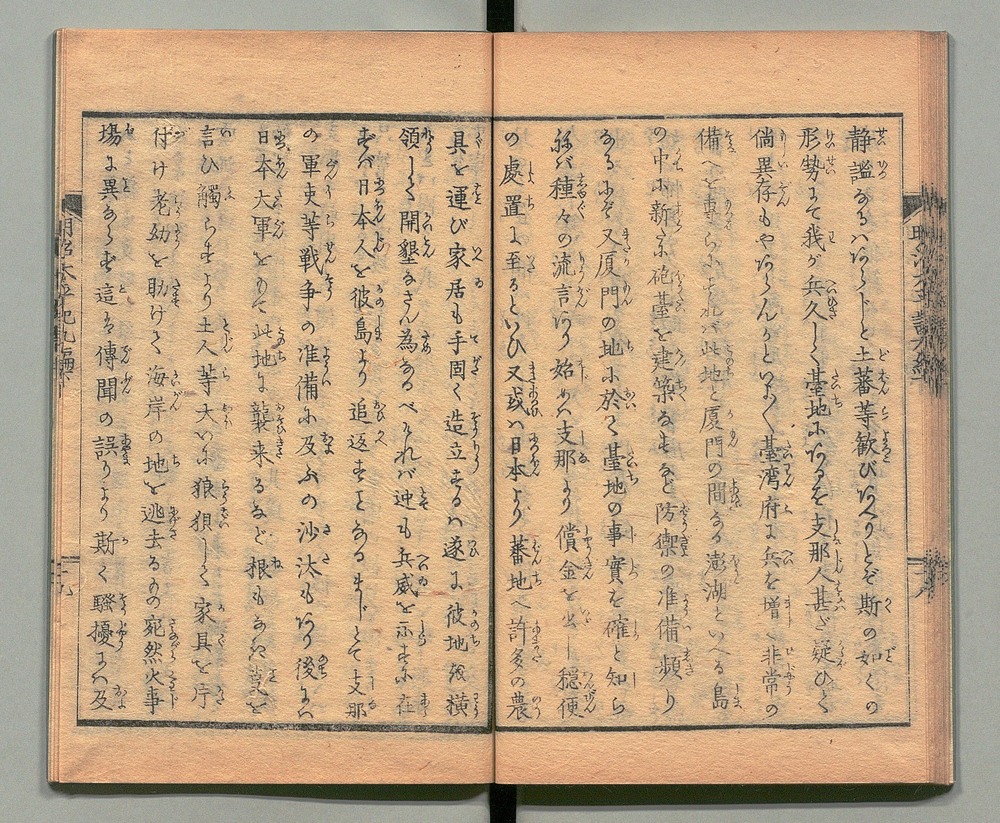 静謐なるハなしと土蕃等歓び合へりとぞ斯の如くの
形勢にて我が兵久しく臺地にあるを支那人甚ざ疑ひ
倘異存もやあらんかといよ〳〵臺湾府に兵を増し非常の
備へを専らにすれバ此地と厦門の間なる澎湖といへる島
の中に新に砲臺を建築なすなど防禦の准備頻り
なるにぞ又厦門の地に於て臺地の事實を確と知ら
ねバ種々の流言あり始めハ支那より償金を出し穏便
の處置に至るといひ又或ハ日本より蕃地へ許多の農
具を運び家居も手固く造立するハ遂に彼地を横
領して開墾なさん為なるべけれバ迚も兵威を示さずに在
ずバ日本人を彼島より追返すことあるまじとて支那
の軍吏等戦争の准備に及ぶの沙汰もあり後にハ
日本大軍をもて此地に襲来るなど根もなき㐂を
言ひ觸らすより土人等大いに狼狽して家具を片
付け老幼を助けて海岸の地を逃去るもの宛然火事
場に異ならず這は傳聞の誤りより斯く騒擾にハ及
明治太平記九編下